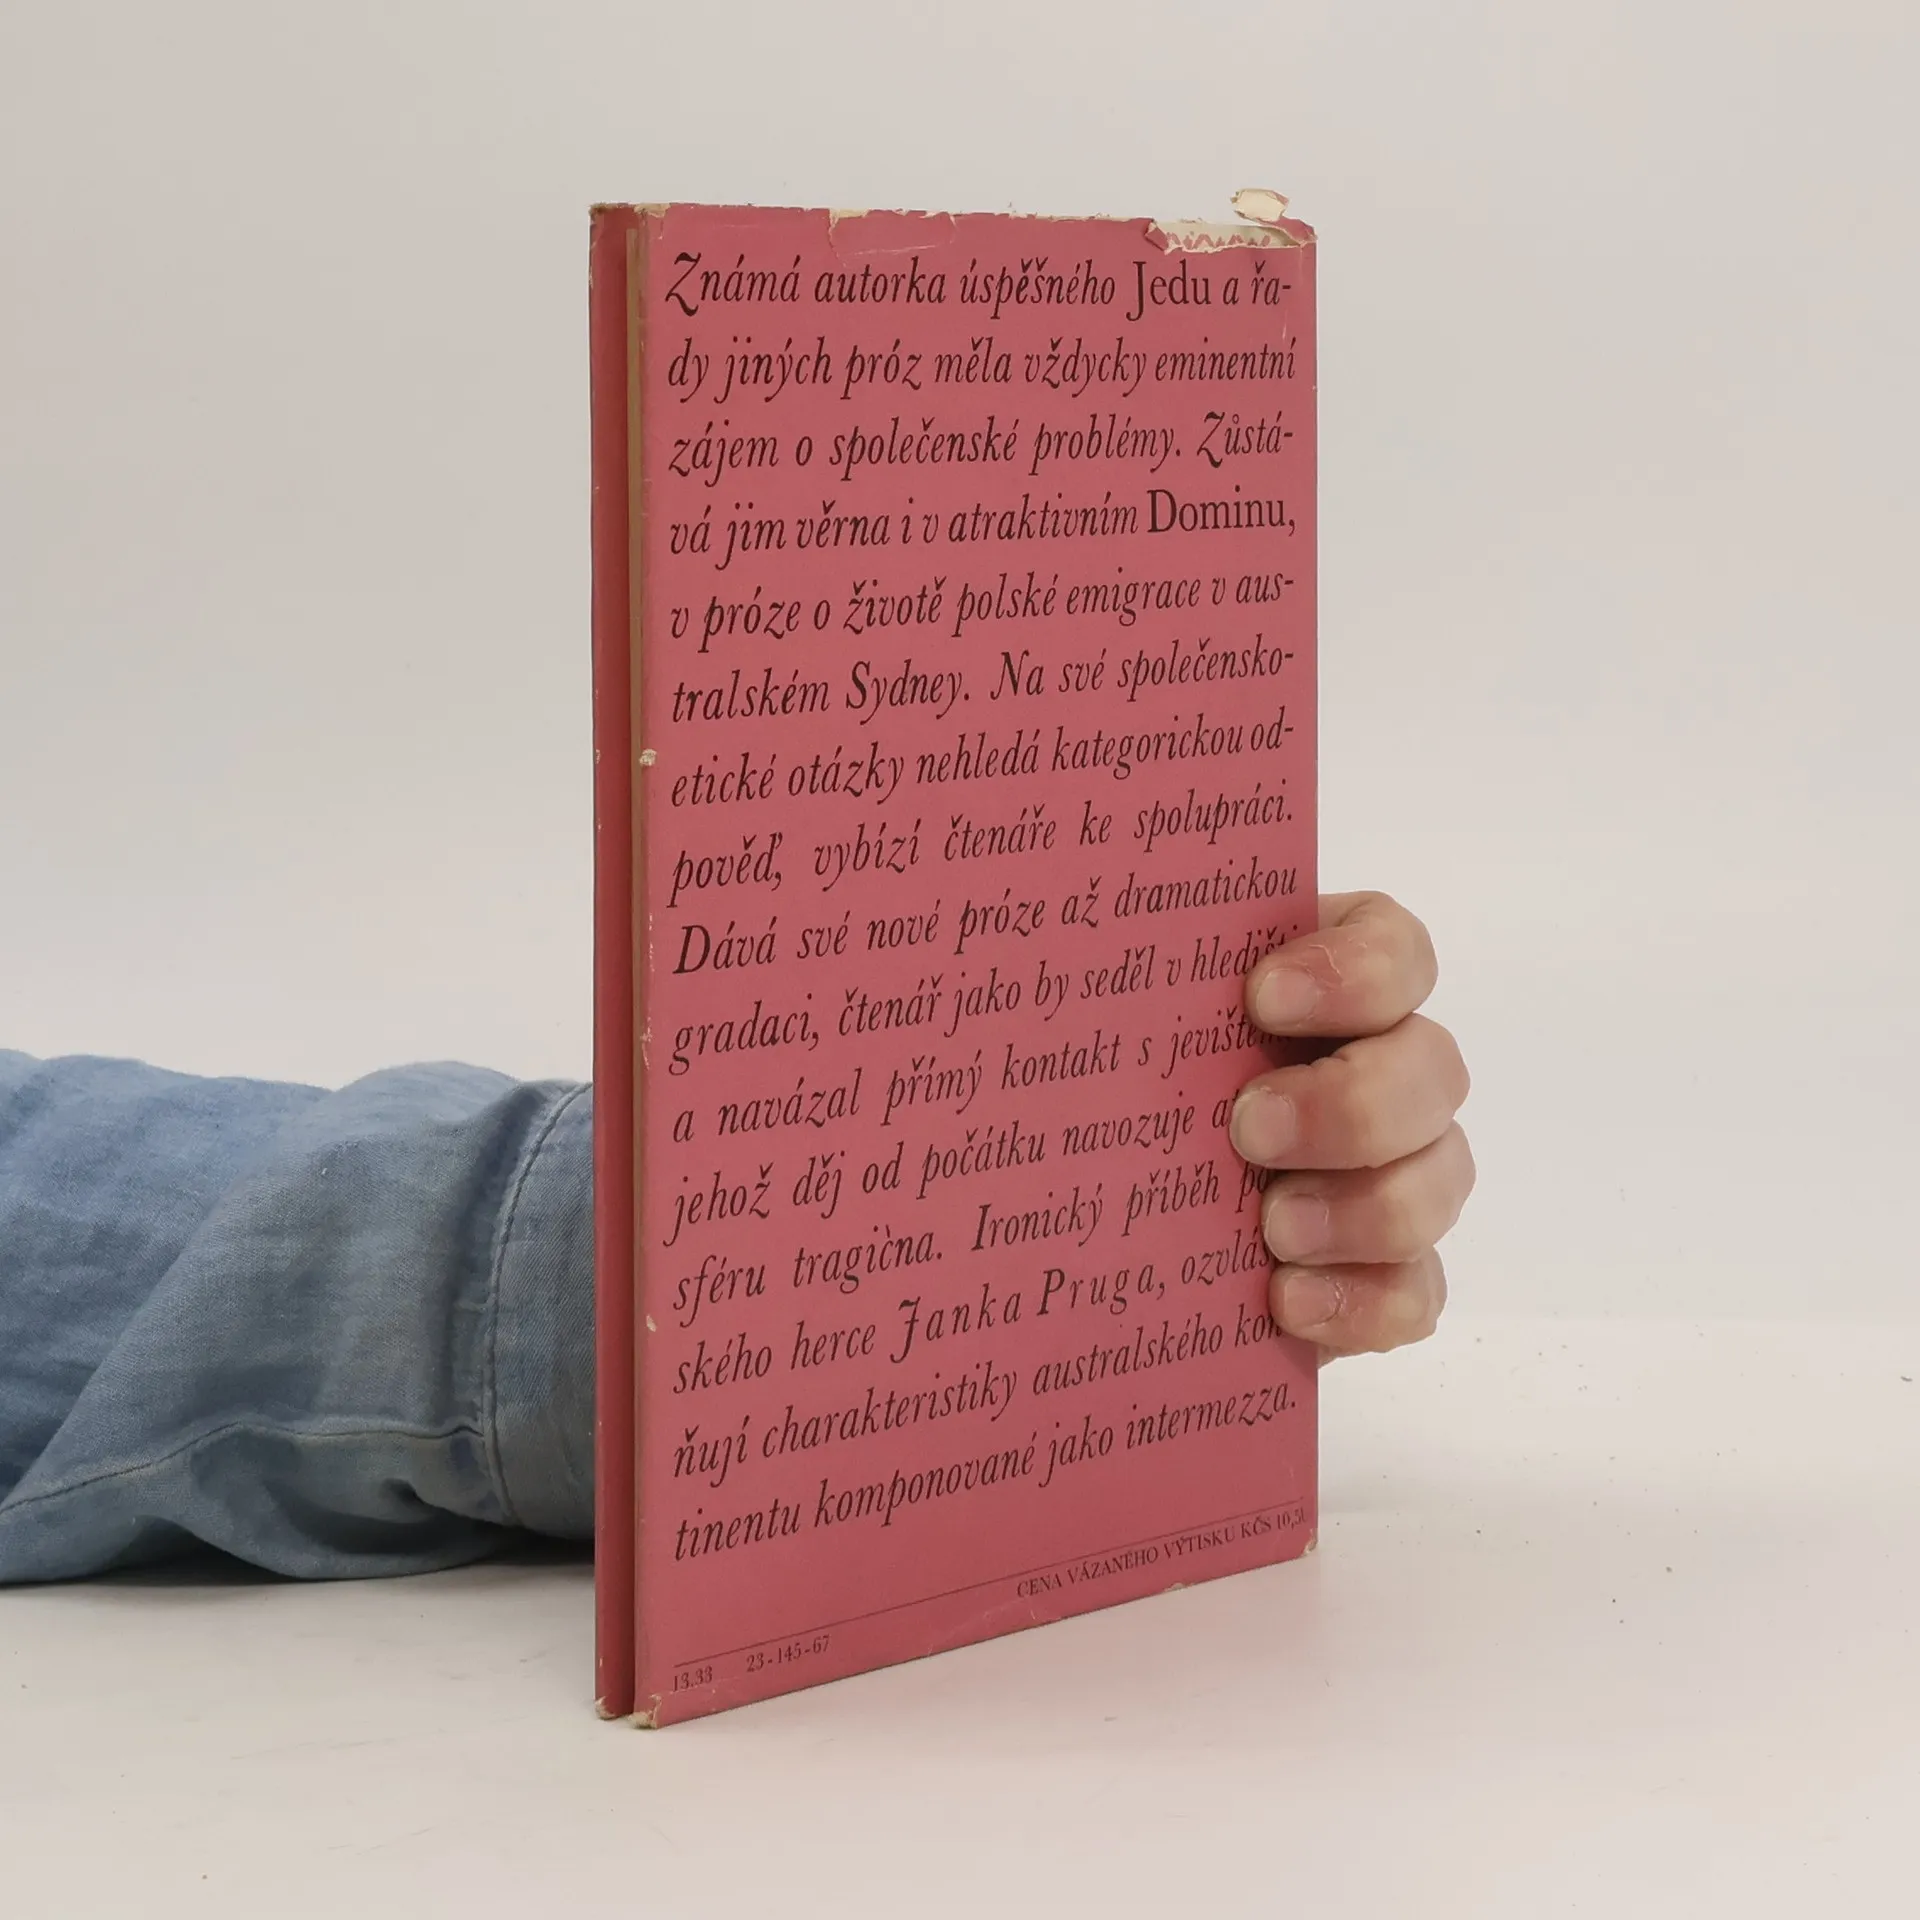 Známá autorka úspěšného Jedu a řa-
dy jiných próz měla vždycky eminentní
zájem o společenské problémy. Zůstá-
vá jim věrna i v atraktivním Dominu,
v próze o životě polské emigrace v aus-
tralském Sydney. Na své společensko-
etické otázky nehledá kategorickou od-
pověď, vybízí čtenáře ke spolupráci.
Dává své nové próze až dramatickou
gradaci, čtenář jako by seděl v hledišti
a navázal přímý kontakt s jevištěm
jehož děj od počátku navozuje
sféru tragična. Ironický příběh
ského herce Janka Pruga,
ňují charakteristiky australského kon-
tinentu komponované jako intermezza.
CENA VÁZANÉHO VÝTISKU KČS
13.33 23-145-67